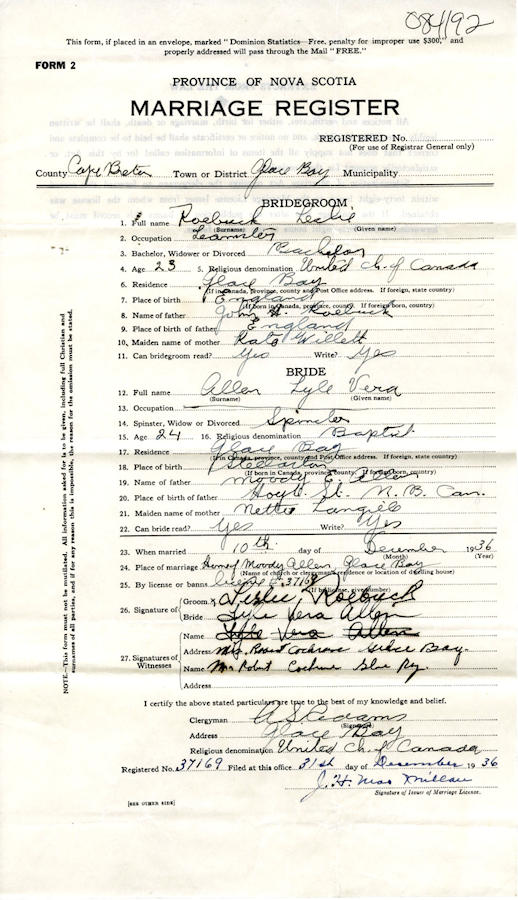 084192
This form, if placed in an envelope, marked "Dominion Statistics—Free, penalty for improper use $300," and
properly addressed will pass through the Mail "FREE."
FORM 2
PROVINCE OF NOVA SCOTIA
MARRIAGE REGISTER
REGISTERED No.
(For use of Registrar General only)
County Cape Breton Town or District Glace Bay Municipality
BRIDEGROOM
1. Full name Roebuck Leslie
(Surname) (Given name)
2. Occupation Teamster
3. Bachelor, Widower or Divorced Bachelor
4. Age 23 5. Religious denomination United Ch. of Canada
6. Residence Glace Bay
(If in Canada, province, county and Post Office address. If foreign, state country)
7. Place of birth England
(If born in Canada, province, county. If foreign born, country)
8. Name of father John H. Roebuck
9. Place of birth of father England
10. Maiden name of mother Kate Willett
11. Can bridegroom read? Yes Write? Yes
BRIDE
12. Full name Allen Lyle Vera
(Surname) (Given name)
13. Occupation
14. Spinster, Widow or Divorced Spinster
15. Age 24 16. Religious denomination Baptist
17. Residence Glace Bay
(If in Canada, province, county and Post Office address. If foreign, state country)
18. Place of birth Stellarton
(If born in Canada, province, county. If foreign born, country)
19. Name of father Moody E. Allen
20. Place of birth of father Hoyt St. N.B. Can.
21. Maiden name of mother Nettie Langille
22. Can bride read? Yes Write? Yes
23. When married 10th day of December 1936
(Month) (Year)
24. Place of marriage Home of Moody Allen, Glace Bay
(Name of church or clergyman's residence or location of dwelling house)
25. By license or banns license 37169
(If by license, give number)
26. Signature of Groom x Leslie Roebuck
Bride Lyle Vera Allen
Name Lyle Vera Allen
27. Signatures of Witnesses
Address Mrs. Robert Cochrane Glace Bay.
Name Mr Robert Cochrane Glace Bay.
Address
I certify the above stated particulars are true to the best of my knowledge and belief.
Clergyman
(Signature)
Address Glace Bay
Religious denomination United Ch. of Canada
Registered No. 37169 Filed at this office 31st day of December 1936
J. H. MacMillan
Signature of Issuer of Marriage License.
[SEE OTHER SIDE]
NOTE—This form must not be mutilated. All information asked for is to be given, including full Christian and
surnames of all parties, and if for any reason this is impossible, the reason for the omission must be stated.